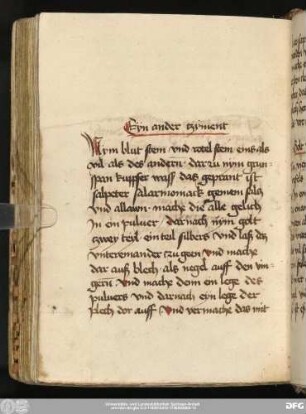 Eyn ander tzyment
Nym blut stein vnd rotel stein eins als
vil als des andern dar zu nym grun
span kupffer wass das geprant ist
salpeter salarmoniack gemein saltz
vnd allawn mache die alle gelich
In ein puluer / darnach nym golt
zwey teyl ein teil silbers vnd laß diß
vntereinander zu geen vnd mache
dar auß blech als negel auff den vin
gern vnd mache dem ein lege des
puluers vnd darnach ein lege der
plech dor auff vnd vermache das mit